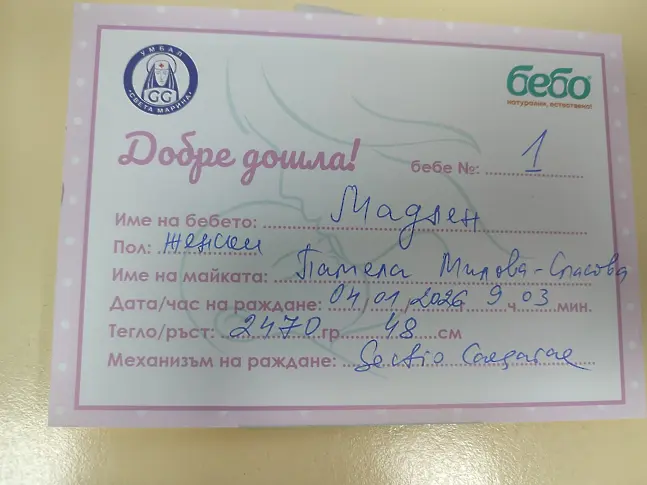 УМБАЛ
GG
"СВЕТА МАРИНА"
бебо®
натурални, естествено!
Добре дошла!
бебе №: 1
Име на бебето: Мадлен
Пол: женски
Име на майката: Памела Милова-Спасова
Дата/час на раждане: 04/01/2026 9 ч 03 мин.
Тегло/ръст: 2470 гр 48 см
Механизъм на раждане: Sectio Caesarae